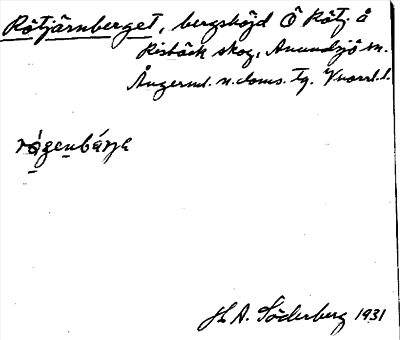 Rötjärnberget, bergshöjd Ö Rötj. å
Risbäck skog, Anundsjö sn.
Ångerml. n. doms. tg. Vnorrl. l.
rógenbárja
H. A. Söderberg 1931